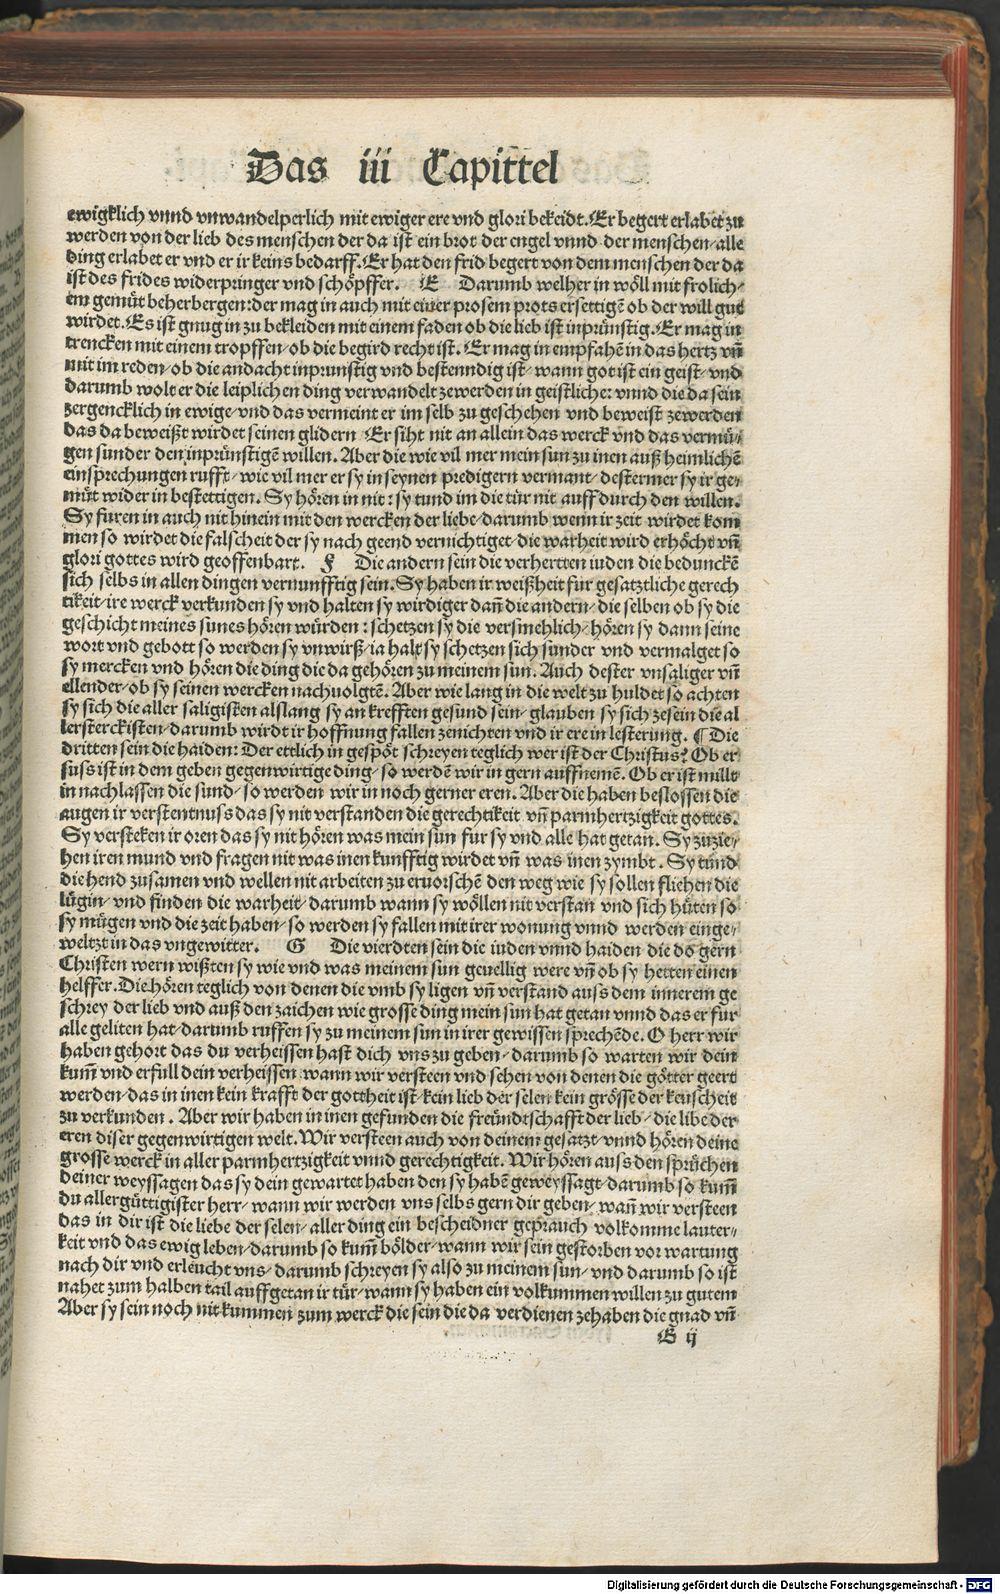 Das iii Capittel
ewigklich vnnd vnwandelperlich mit ewiger ere vnd glori bekeidt. Er begert erlabet zu
werden von der lieb des menschen der da ist ein brot der engel vnnd der menschen/ alle
ding erlabet er vnd er ir keins bedarff. Er hat den frid begert von dem menschen der da
ist des frides widerpringer vnd schöpffer. E Darumb welher in wöll mit frolich⸗
em gemüt beherbergen: der mag in auch mit einer prosem prots ersettigē ob der will gut
wirdet. Es ist gnug in zu bekleiden mit einem faden ob die lieb ist inprünstig. Er mag in
trencken mit einem tropffen/ ob die begird recht ist. Er mag in empfahē in das hertz vn̄
mit im reden/ ob die andacht inprunstig vnd bestenndig ist/ wann got ist ein geist/ vnd
darumb wolt er die leiplichen ding verwandelt zewerden in geistliche: vnnd die da sein
zergencklich in ewige/ vnd das vermeint er im selb zu geschehen vnd beweist zewerden
das da beweißt wirdet seinen glidern Er siht nit an allein das werck vnd das vermü⸗
gen sunder den inprünstigē willen. Aber die wie vil mer mein sun zu inen auß heimlichē
einsprechungen rufft/ wie vil mer er sy in seynen predigern vermant/ destermer sy ir ge⸗
müt wider in bestettigen. Sy hören in nit: sy tund im die tür nit auff durch den willen.
Sy furen in auch nit hinein mit den wercken der liebe/ darumb wenn ir zeit wirdet kom
men so wirdet die falscheit der sy nach geend vernichtiget/ die warheit wird erhöcht vn̄
glori gottes wird geoffenbart. F Die andern sein die verhertten iuden die beduncкē
sich selbs in allen dingen vernunfftig sein. Sy haben ir weißheit für gesatztliche gerech
tikeit/ ire werck verkunden sy vnd halten sy wirdiger dan̄ die andern/ die selben ob sy die
geschicht meines sunes hören würden: schetzen sy die versmehlich/ hören sy dann seine
wort vnd gebott so werden sy vnwirß/ ia halt sy schetzen sich sunder vnd vermalget so
sy mercken vnd hören die ding die da gehören zu meinem sun. Auch dester vnsaliger vn̄
ellender/ ob sy seinen wercken nachuolgtē. Aber wie lang in die welt zu huldet so achten
sy sich die aller saligisten alslang sy an krefften gesund sein/ glauben sy sich zesein die al
lersterckisten/ darumb wirdt ir hoffnung fallen zenichten vnd ir ere in lesterung. ¶ Die
dritten sein die haiden: Der ettlich in gespöt schreyen teglich wer ist der Christus? Ob er
suss ist in dem geben gegenwirtige ding/ so werdē wir in gern auffnemē. Ob er ist millt
in nachlassen die sund/ so werden wir in noch gerner eren. Aber die haben beslossen die
augen ir verstentnuss das sy nit verstanden die gerechtikeit vn̄ parmhertzigkeit gottes.
Sy versteken ir oren das sy nit hören was mein sun fur sy vnd alle hat getan. Sy zuzie⸗
hen iren mund vnd fragen nit was inen kunfftig wirdet vn̄ was inen zymbt. Sy tund
die hend zusamen vnd wellen nit arbeiten zu eruorschē den weg wie sy sollen fliehen die
lügin/ vnd finden die warheit/ darumb wann sy wöllen nit verstan vnd sich hüten so
sy mügen vnd die zeit haben/ so werden sy fallen mit irer wonung vnnd werden einge⸗
weltzt in das vngewitter. G Die vierdten sein die iuden vnnd haiden die do gern
Christen wern wißten sy wie vnd was meinem sun geuellig were vn̄ ob sy hetten einen
helffer. Die hören teglich von denen die vmb sy ligen vn̄ verstand auss dem innerem ge
schrey der lieb vnd auß den zaichen wie grosse ding mein sun hat getan vnnd das er fur
alle geliten hat/ darumb ruffen sy zu meinem sun in irer gewissen sprechēde. O herr wir
haben gehort das du verheissen hast dich vns zu geben/ darumb so warten wir dein
kum̄ vnd erfull dein verheissen/ wann wir versteen vnd sehen von denen die götter geert
werden/ das in inen kein krafft der gottheit ist/ kein lieb der selen kein grösse der keuscheit
zu verkunden. Aber wir haben in inen gefunden die freündtschafft der lieb/ die libe der
eren diser gegenwirtigen welt. Wir versteen auch von deinem gesatzt/ vnnd hören deine
grosse werck in aller parmhertzigkeit vnnd gerechtigkeit. Wir hören auss den sprüchen
deiner weyssagen das sy dein gewartet haben den sy habē geweyssagt/ darumb so kum̄
du allergüttigister herr/ wann wir werden vns selbs gern dir geben/ wan̄ wir versteen
das in dir ist die liebe der selen/ aller ding ein bescheidner geprauch volkomme lauter⸗
keit vnd das ewig leben/ darumb so kum̄ bölder/ wann wir sein gestorben vor wartung
nach dir vnd erleucht vns/ darumb schreyen sy also zu meinem sun/ vnd darumb so ist
nahet zum halben tail auffgetan ir tür/ wann sy haben ein volkummen willen zu gutem
Aber sy sein noch nit kummen zum werck die sein die da verdienen zehaben die gnad vn̄
G ij
Digitalisierung gefördert durch die Deutsche Forschungsgemeinschaft - DFG